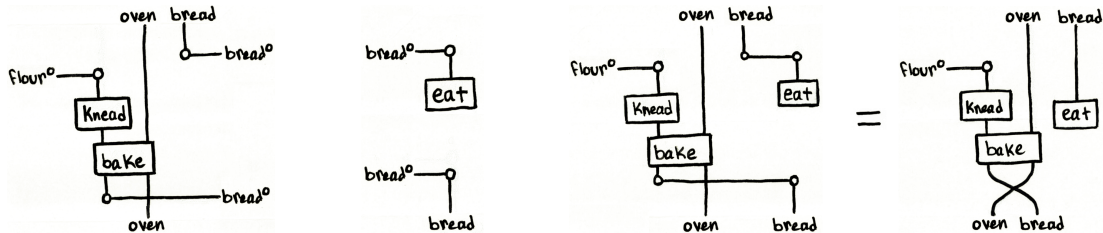 oven bread
bread⁰
flour⁰
Knead
bake
bread⁰
oven
bread⁰
eat
bread⁰
bread
oven bread
flour⁰
eat
Knead
bake
oven bread
=
oven bread
flour⁰
Knead
eat
bake
oven bread